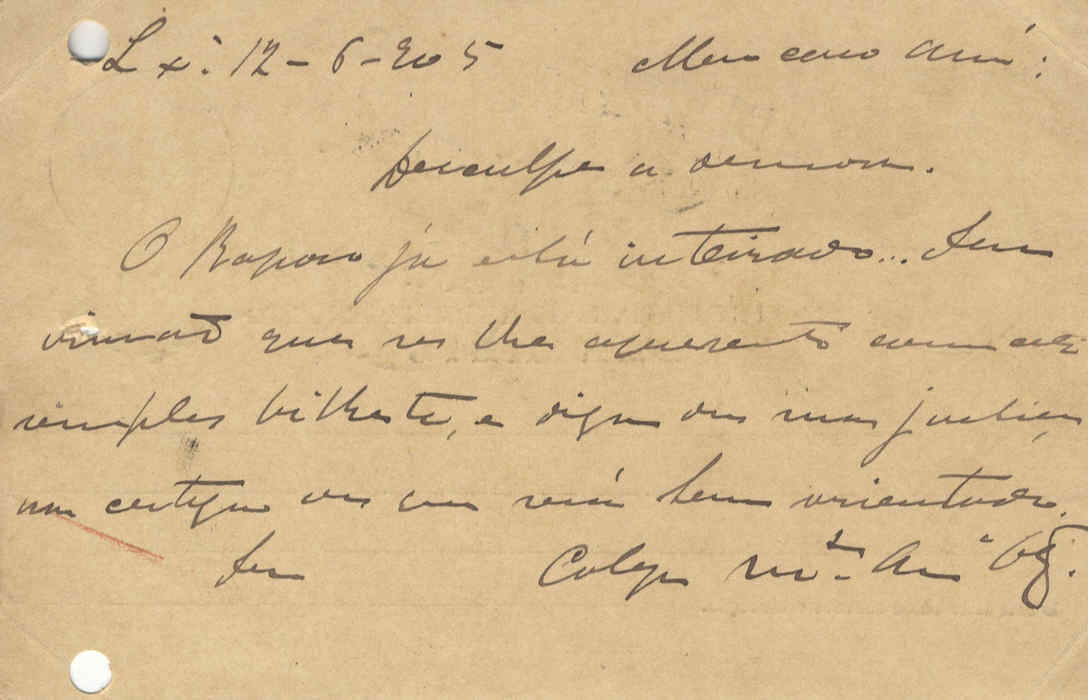 Lx.ª 12-6-905 Meu caro Am.º:
Desculpe a demora.
O Raposo já está inteirado... Seu
que se lhe apresente com este
simples bilhete, e diga da sua justiça,
na certeza de que será bem orientado.
Seu Colega m.to Am.º e Obg.